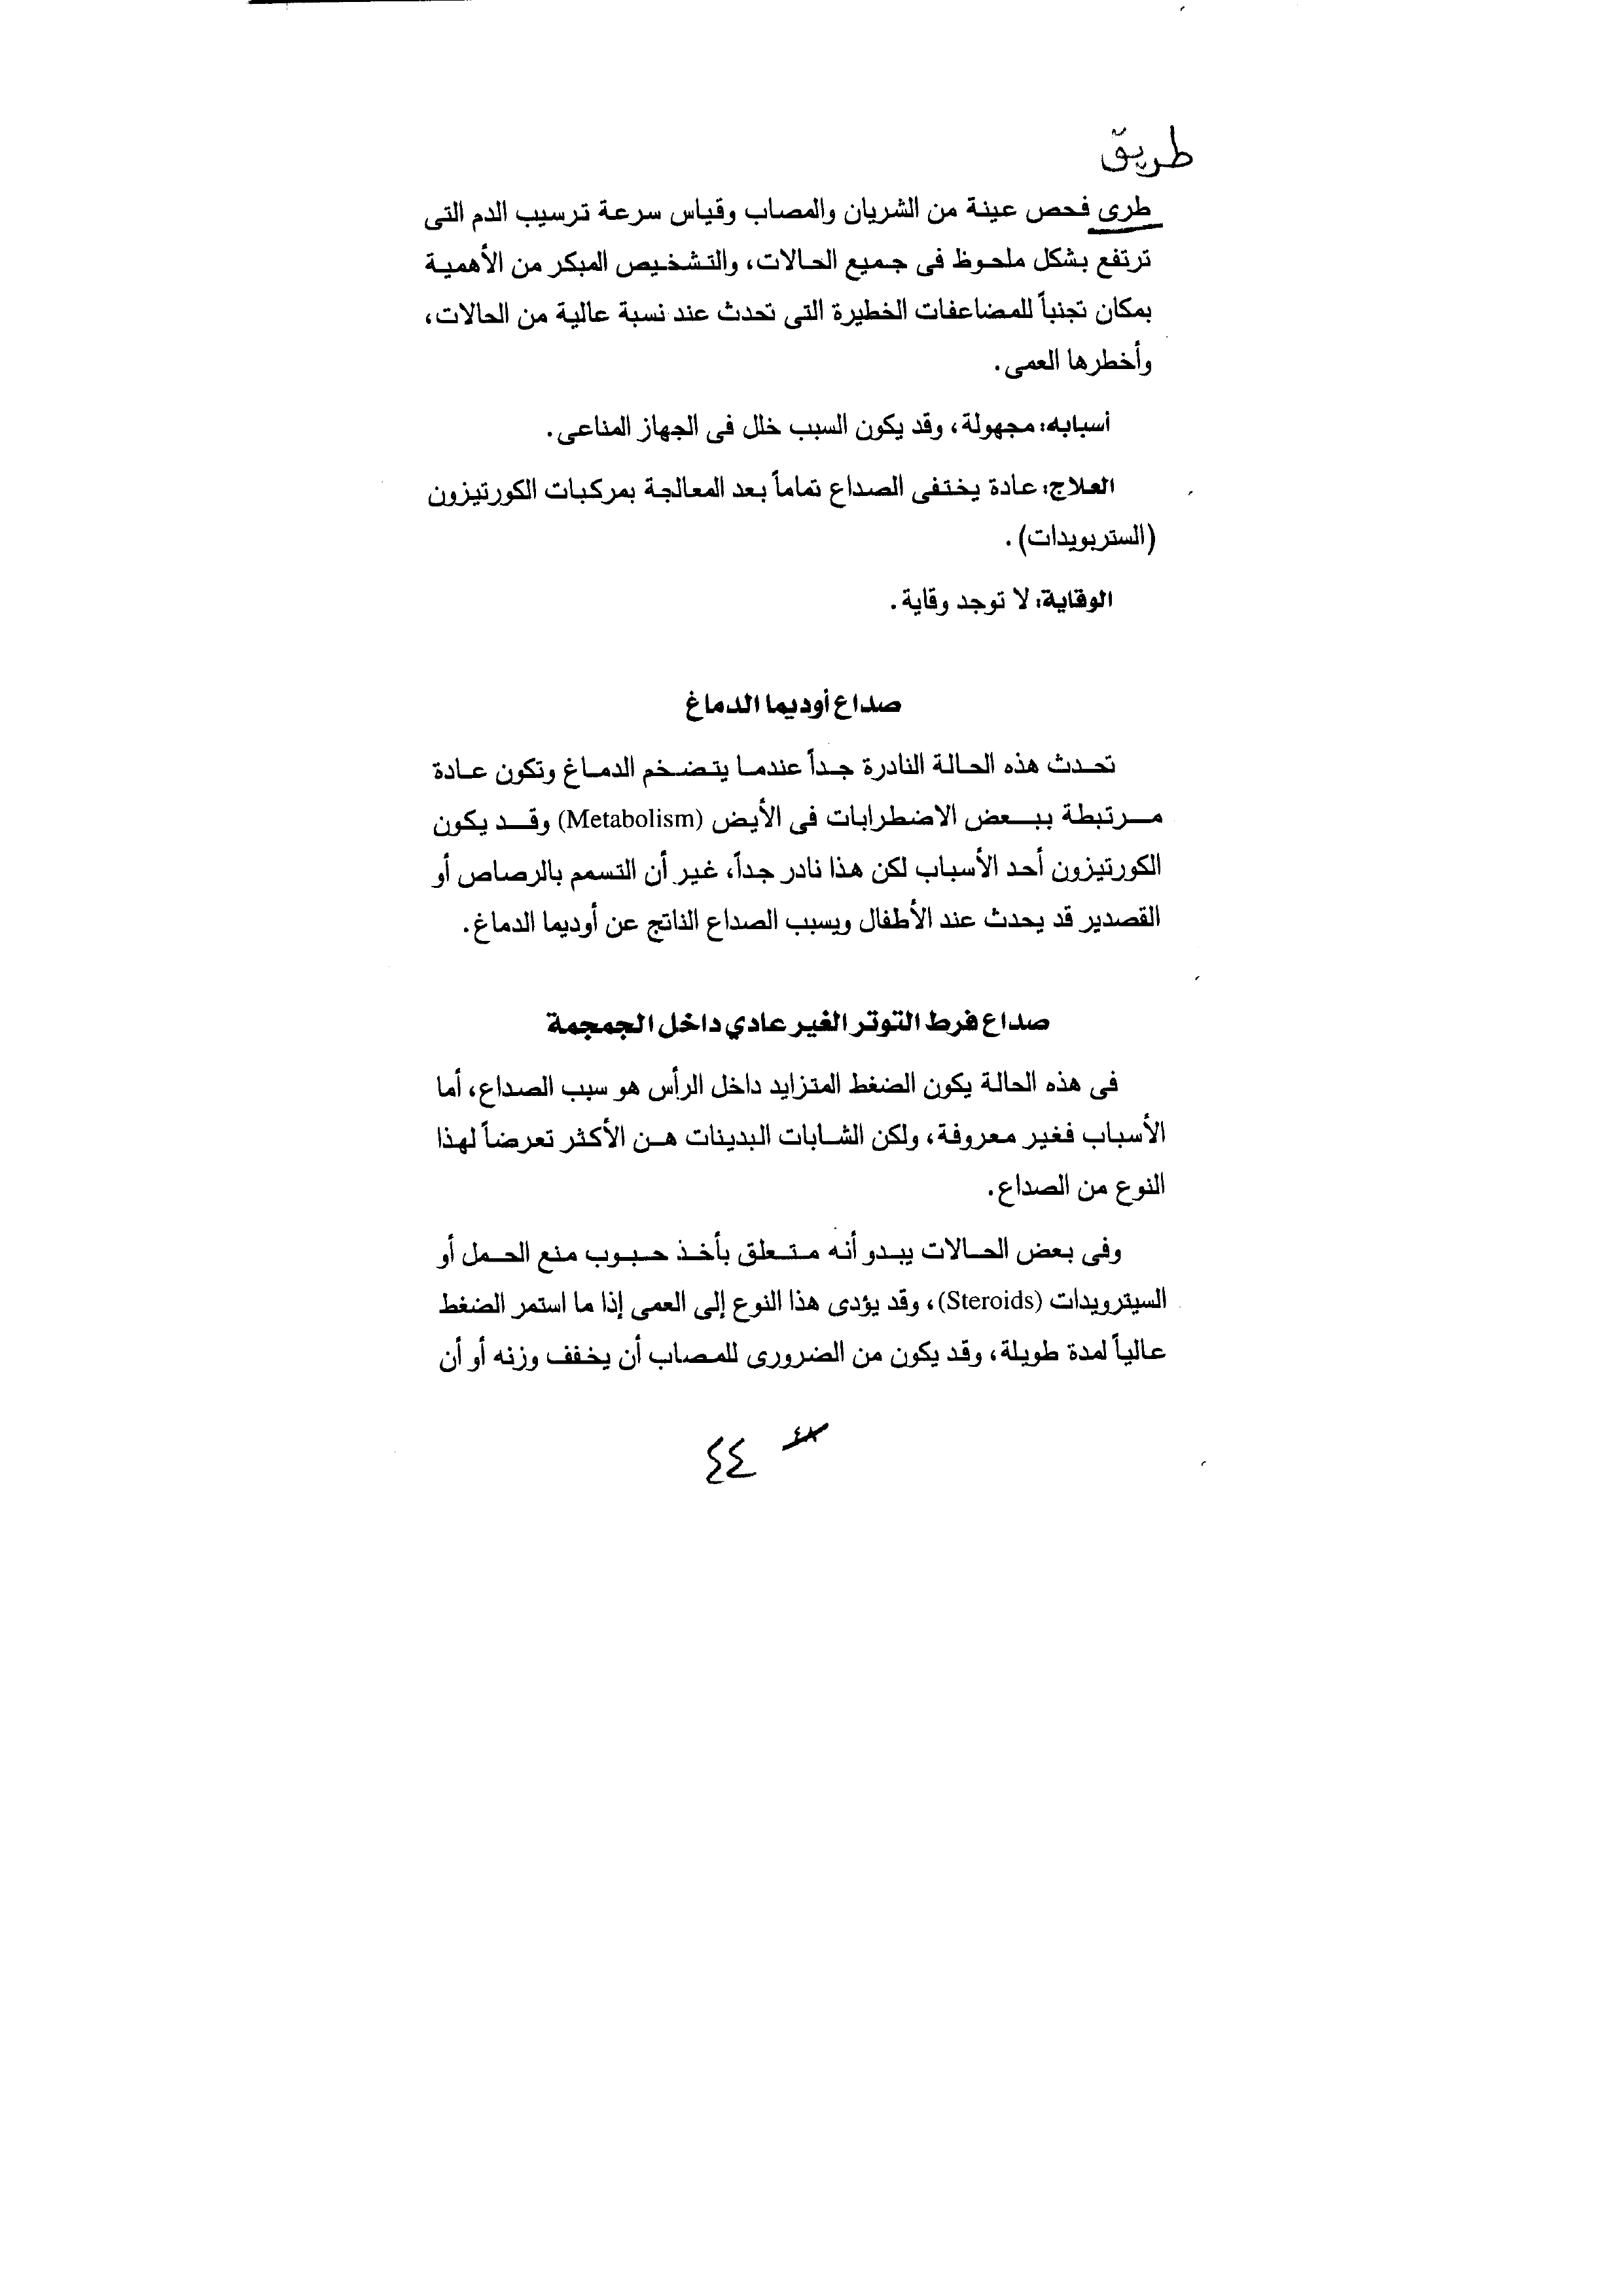 طريق
طرى فحص عينة من الشريان والمصاب وقياس سرعة ترسيب الدم التى
ترتفع بشكل ملحوظ فى جميع الحالات، والتشخيص المبكر من الأهمية
بمكان تجنباً للمضاعفات الخطيرة التى تحدث عند نسبة عالية من الحالات،
وأخطرها العمى.
أسبابه: مجهولة، وقد يكون السبب خلل فى الجهاز المناعى.
العلاج: عادة يختفى الصداع تماماً بعد المعالجة بمركبات الكورتيزون
(الستربويدات).
الوقاية: لا توجد وقاية.
صداع أوديما الدماغ
تحدث هذه الحالة النادرة جداً عندما يتضخم الدماغ وتكون عادة
مرتبطة ببعض الاضطرابات فى الأيض (Metabolism) وقد يكون
الكورتيزون أحد الأسباب لكن هذا نادر جداً، غير أن التسمم بالرصاص أو
القصدير قد يحدث عند الأطفال ويسبب الصداع الناتج عن أوديما الدماغ.
صداع فرط التوتر الغير عادي داخل الجمجمة
فى هذه الحالة يكون الضغط المتزايد داخل الرأس هو سبب الصداع، أما
الأسباب فغير معروفة، ولكن الشابات البدينات هن الأكثر تعرضاً لهذا
النوع من الصداع.
وفى بعض الحالات يبدو أنه متعلق بأخذ حبوب منع الحمل أو
السيترويدات (Steroids)، وقد يؤدى هذا النوع إلى العمى إذا ما استمر الضغط
عالياً لمدة طويلة، وقد يكون من الضرورى للمصاب أن يخفف وزنه أو أن
٤٤